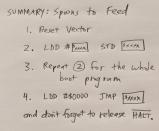 SUMMARY: Spoons to Feed
1. Reset Vector
2. LDD # STD
3. Repeat 2 for the whole
boot program
4. LDD #$0000 JMP
and don't forget to release HALT.